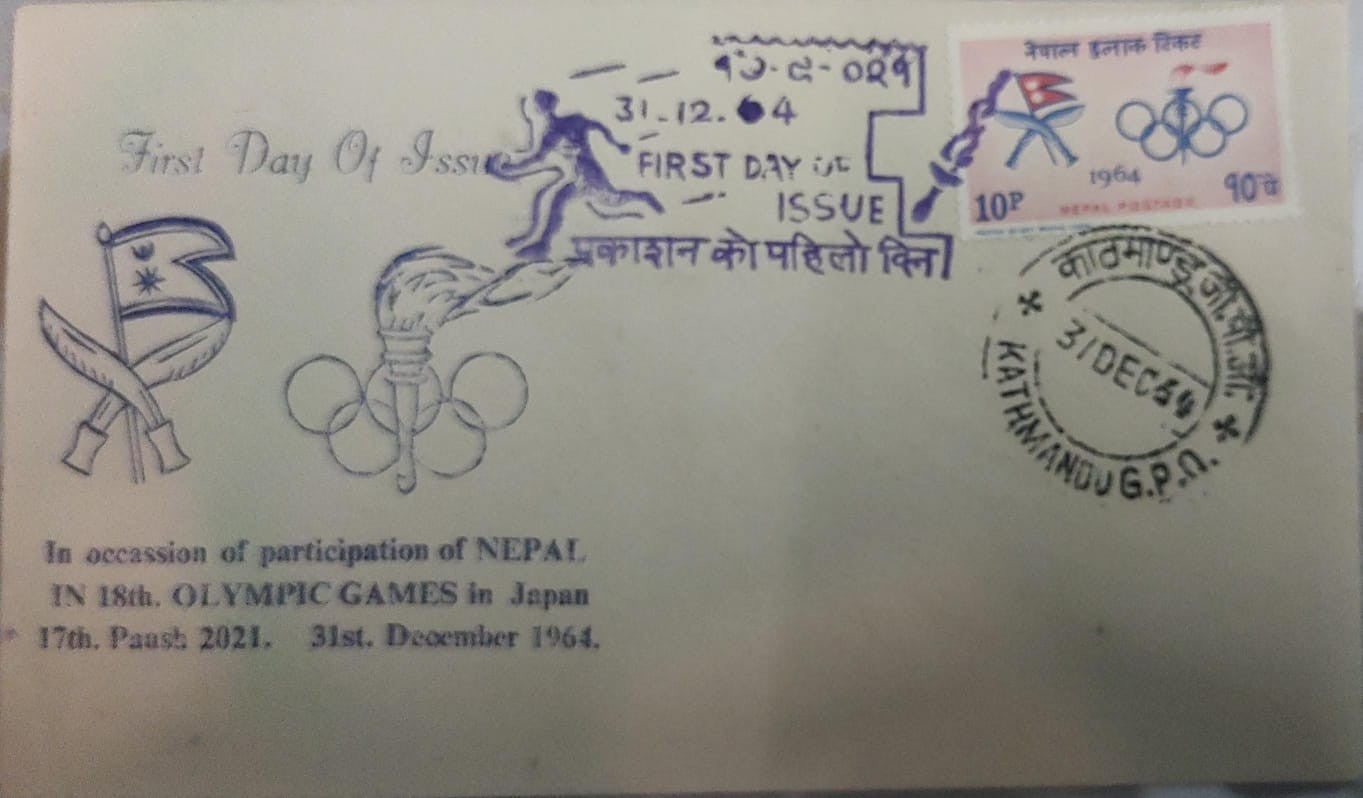 First Day Of Issue
१७-९-०२१
31.12.64
FIRST DAY OF
ISSUE
प्रकाशन को पहिलो दिन
नेपाल हुलाक टिकट
1964
10P
१०पै
NEPAL POSTAGE
काठमाण्डू जी.पी.ओ.
31 DEC 64
KATHMANDU G.P.O.
In occassion of participation of NEPAL
IN 18th. OLYMPIC GAMES in Japan
17th. Paush 2021. 31st. December 1964.